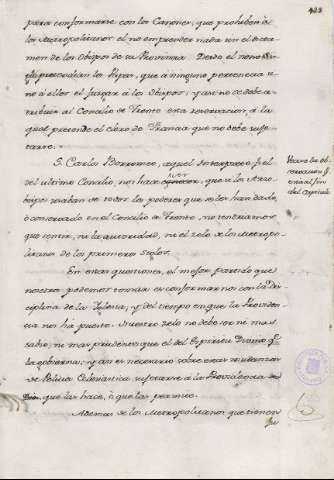 423
para conformarse con los Canones, que prohiben à
los Metropolitanos el no emprender nada sin el dicta-
men de los Obispos de su Provincia. Desde el nono si-
glo pretendian los Papas, que à ninguno pertenecia si-
no à ellos el juzgar à los Obispos; y asi no se debe a-
tribuir al Concilio de Trento esta reservacion, à la
qual pretende el clero de Francia que no debe suje-
tarse.
S. Carlos Borromeo, aquel Interprete fiel
del ultimo Concilio, nos hace ver, que si los Arzo-
bispos usaban de todos los poderes que se les han dado,
ò conservado en el Concilio de Trento, no tendriamos
que sentir, ni la autoridad, ni el zelo de los Metropo-
litanos de los primeros siglos.
En estas questiones, el mejor partido que
nosotros podemos tomar es conformarnos con la Dis-
ciplina de la Iglesia, y del tiempo en que la Providen-
cia nos ha puesto. Nuestro zelo no debe ser ni mas
sabio, ni mas prudente que el del Espiritu Divino q.
la gobierna; y asi es necesario sobre estas mudanzas
de Policia Eclesiastica referirse à la Providencia de
Dios que las hace, ò que las permite.
Ademas de los Metropolitanos que tienen